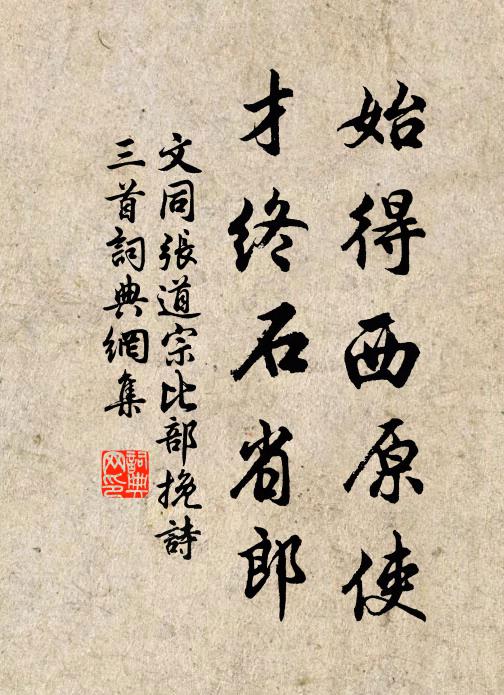 始得西原使
才終石省郎
文同張道宗比部挽詩
三首詞典網集
詞典網印